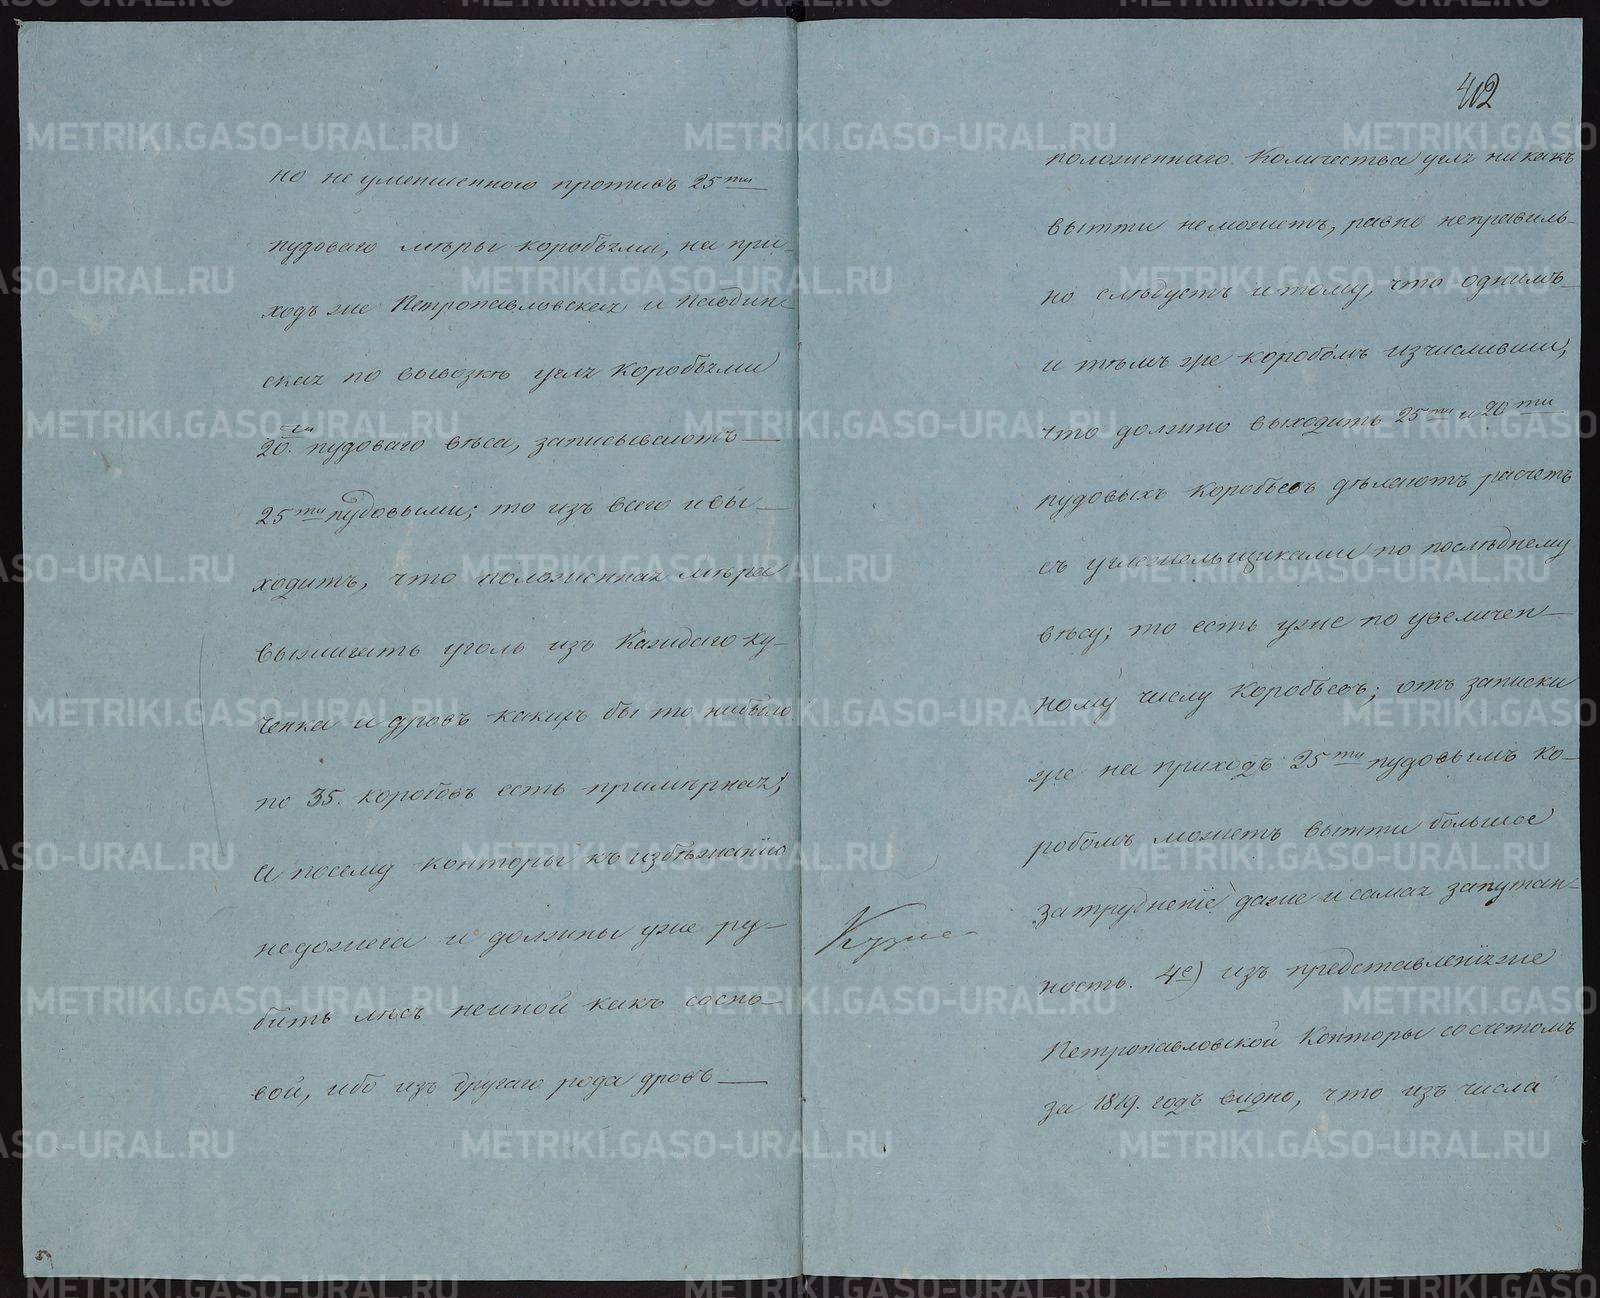 но не уменшенного противъ 25ти
пудоваго мѣры коробъями, на при-
ходъ же Петропавловская и Павдин-
ская по вывозкѣ угля коробъями
20ти пудоваго вѣса, записываютъ
25ти пудовыми; то изъ всего и вы-
ходитъ, что положенная мѣра
выжигать уголь из каждаго ку-
ченка и дровъ какихъ бы то нибыло
по 35. коробовъ есть примѣрная;
а посему конторы къ избѣжанію
недожега и должны уже ру-
бить лѣсъ не иной какъ сосно-
вой, ибо изъ другаго рода дровъ
402
положеннаго количества угля никакъ
вытти неможетъ, равно неправиль-
но слѣдуетъ и тому, что однимъ
и тѣмъ же коробомъ изчисливши,
что должно выходить 25ти и 20ти
пудовыхъ коробьевъ дѣлаютъ расчетъ
съ углежельщиками по послѣднему
вѣсу; то есть уже по увеличен-
ному числу коробьевъ; отъ записки
же на приходъ 25ти пудовымъ ко-
робомъ можетъ вытти большое
затрудненіе даже и самая запутан-
ность. 4е) изъ представленія же
Петропавловской Конторы со счетомъ
за 1819. годъ видно, что изъ числа
METRIKI.GASO-URAL.RU